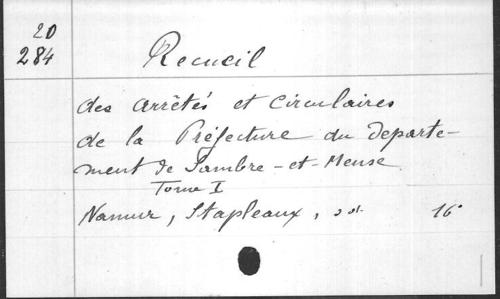 20
284
Recueil
des arrêtés et circulaires
de la Préfecture du départe-
ment de Sambre-et-Meuse
Tome I
Namur, Stapleaux, 16°